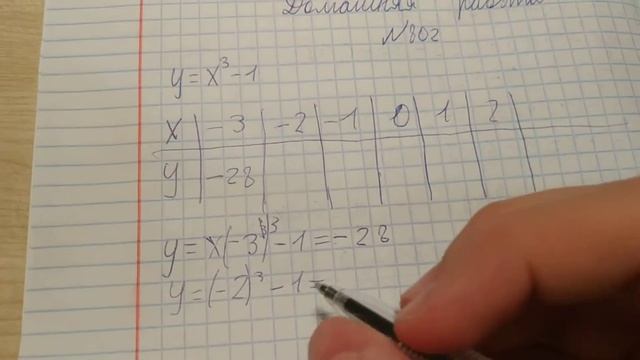 Домашняя работа
№802
y=x³-1
x | -3 | -2 | -1 | 0 | 1 | 2
y | -28
y=x(-3)³-1=-28
y=(-2)³-1=